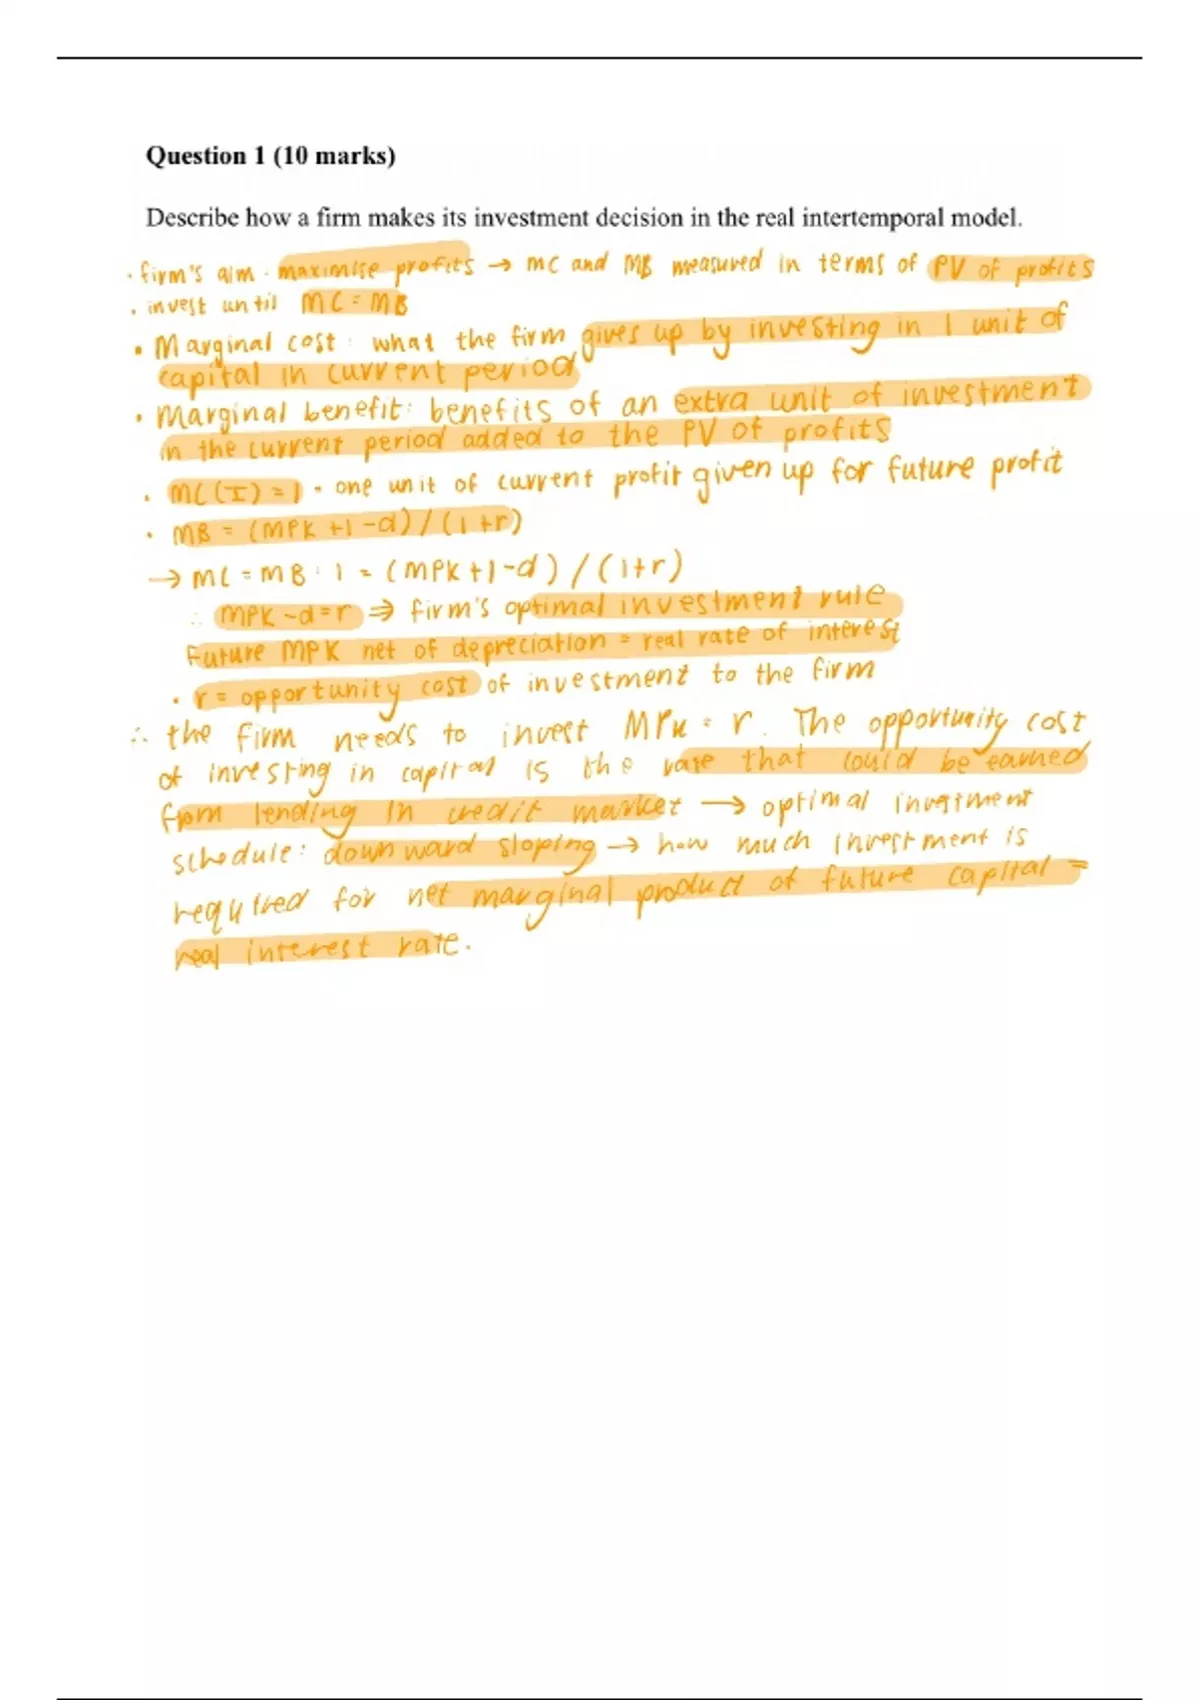 Question 1 (10 marks)
Describe how a firm makes its investment decision in the real intertemporal model.
• firm's aim • maximise profits → MC and MB measured in terms of PV of profits
• invest until MC = MB
• Marginal cost: what the firm gives up by investing in 1 unit of
capital in current period
• Marginal benefit: benefits of an extra unit of investment
in the current period added to the PV of profits
• MC(I) = 1 • one unit of current profit given up for future profit
• MB = (MPK +1-d)/(1+r)
→ MC = MB : 1 = (MPK+1-d)/(1+r)
∴ MPK-d=r ⇒ firm's optimal investment rule
Future MPK net of depreciation = real rate of interest
• r = opportunity cost of investment to the firm
∴ the firm needs to invest MPK = r. The opportunity cost
of investing in capital is the rate that could be earned
from lending in credit market → optimal investment
schedule: downward sloping → how much investment is
required for net marginal product of future capital =
real interest rate.